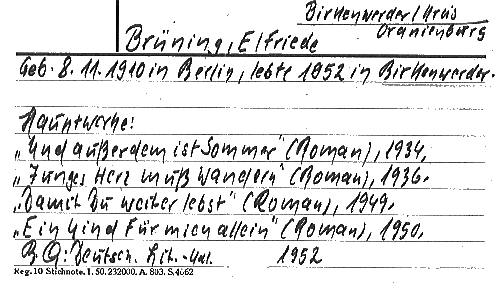 Birkenwerder/Kreis
Oranienburg
Brüning, Elfriede
Geb. 8. 11. 1910 in Berlin, lebte 1952 in Birkenwerder.
Hauptwerke:
„Und außerdem ist Sommer" (Roman), 1934,
„Junges Herz muß wandern" (Roman), 1936.
„Damit Du weiterlebst" (Roman), 1949.
„Ein Kind für mich allein" (Roman), 1950.
BQ: Deutsch. Lit.-Kal. 1952
Reg. 10 Stichnote. 1. 50. 232000. A. 803. S. 4662